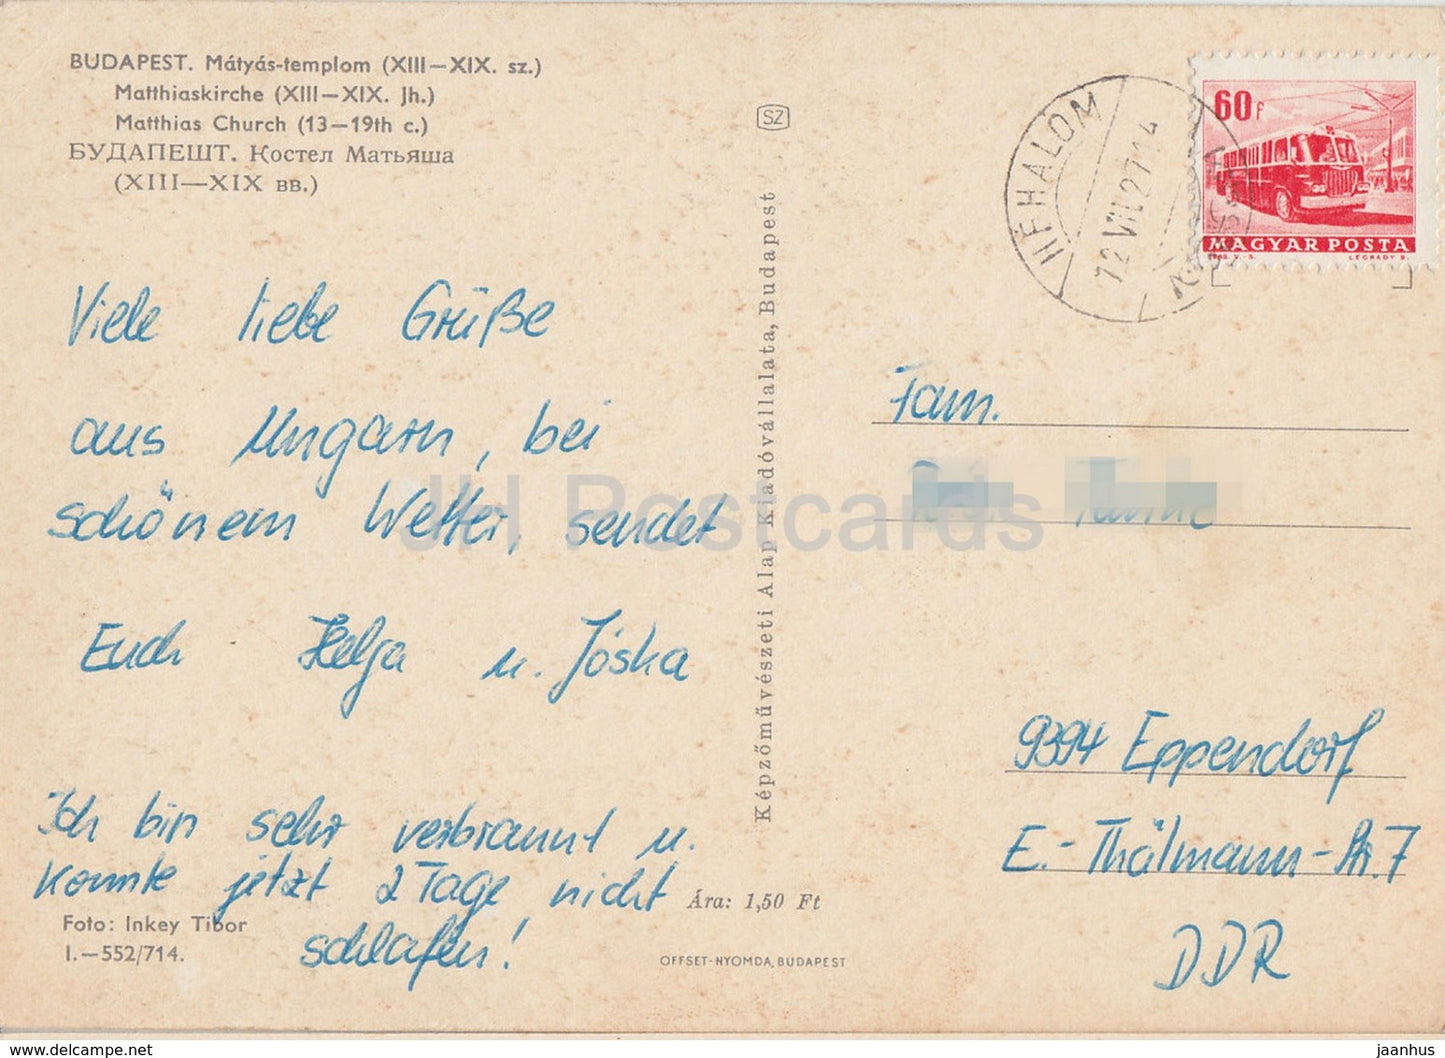 BUDAPEST. Mátyás-templom (XIII—XIX. sz.)
Matthiaskirche (XIII—XIX. Jh.)
Matthias Church (13—19th c.)
БУДАПЕШТ. Костел Матьяша
(XIII—XIX вв.)
SZ
HÉHALOM
72 VII. 27 14
60f
MAGYAR POSTA
LÉGRÁDY S.
Viele liebe Grüße
aus Ungarn, bei
schönem Wetter, sendet
Euch Helga u. Jóska
Ich bin sehr verbrannt u.
konnte jetzt 2 Tage nicht
schlafen!
Foto: Inkey Tibor
I.—552/714.
Képzőművészeti Alap Kiadóvállalata, Budapest
Ára: 1,50 Ft
OFFSET-NYOMDA, BUDAPEST
Fam.
9394 Eppendorf
E.-Thälmann-Str. 7
DDR
JH Postcards
www.delcampe.net
jaanhus